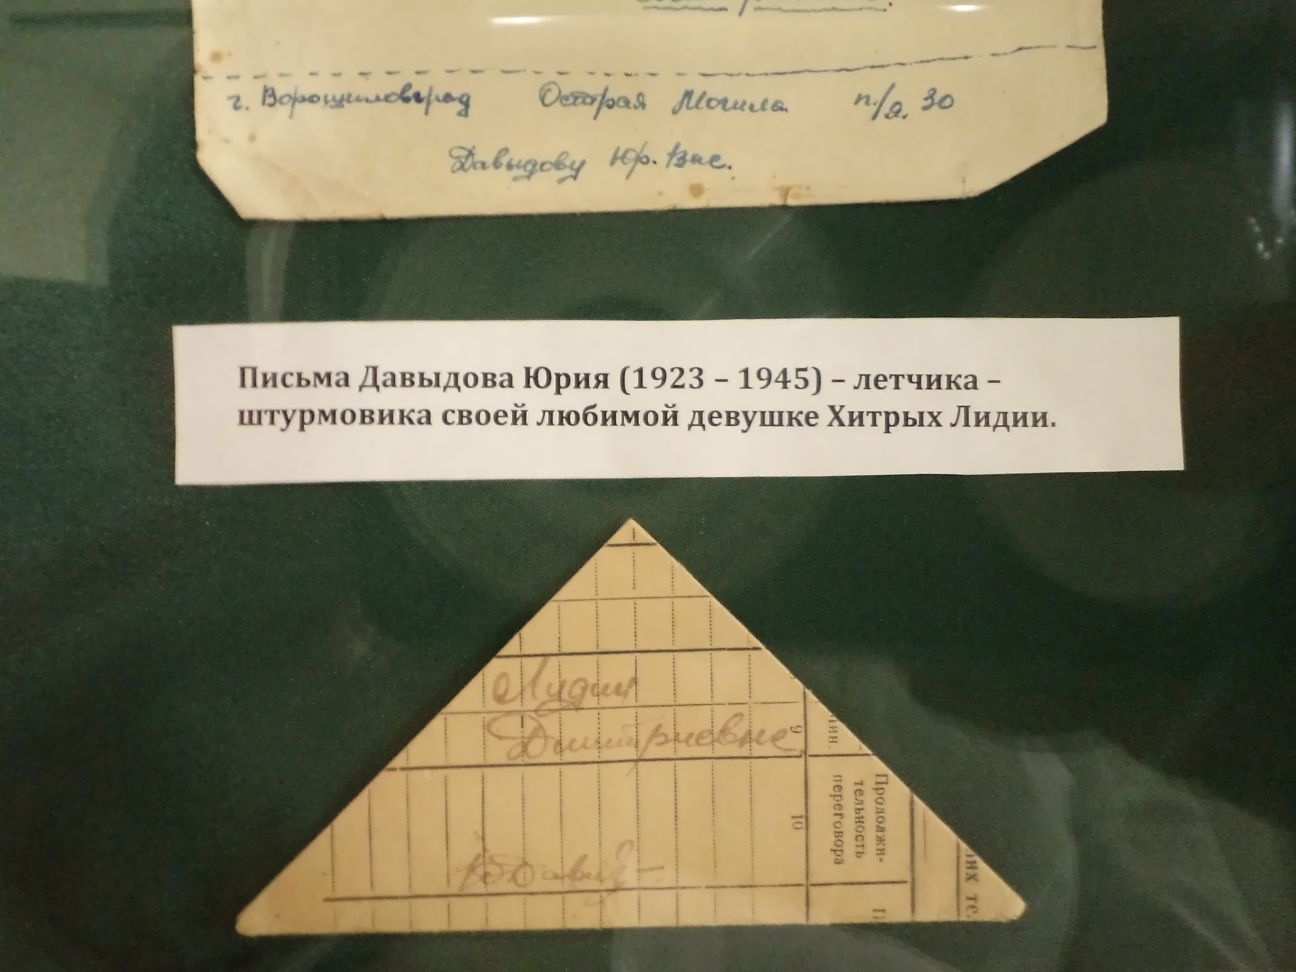 г. Ворошиловград Острая Могила п/я. 30
Давыдову Юр. Вас.
Письма Давыдова Юрия (1923 – 1945) – летчика –
штурмовика своей любимой девушке Хитрых Лидии.
Лидии
Дмитриевне
9
ин.
10
Продолжи-
тельность
переговора
их те.